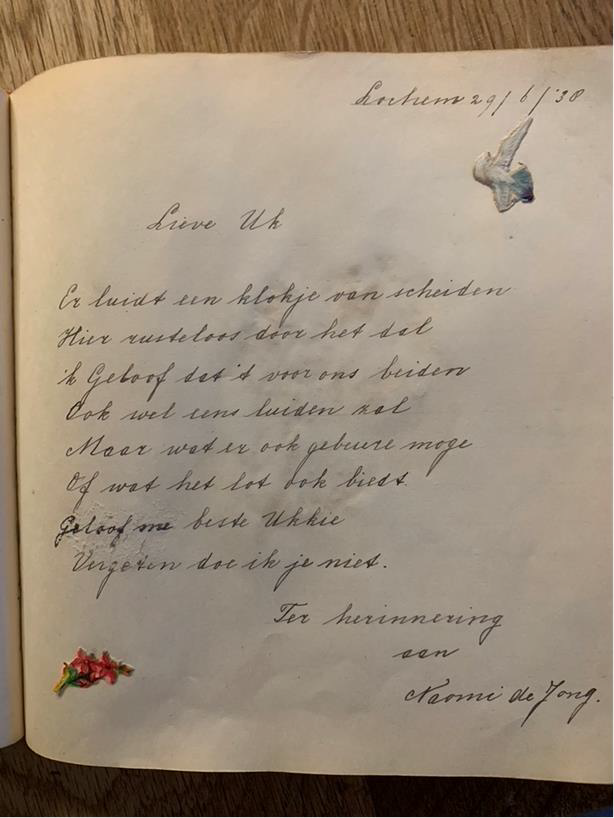 Lochem 29/6/'38
Lieve Uk
Er luidt een klokje van scheiden
Hier rusteloos door het dal
'k Geloof dat 't voor ons beiden
Ook wel eens luiden zal
Maar wat er ook gebeure moge
Of wat het lot ook biedt.
Geloof me beste Ukkie
Vergeten doe ik je niet.
Ter herinnering
aan
Naomi de Jong.